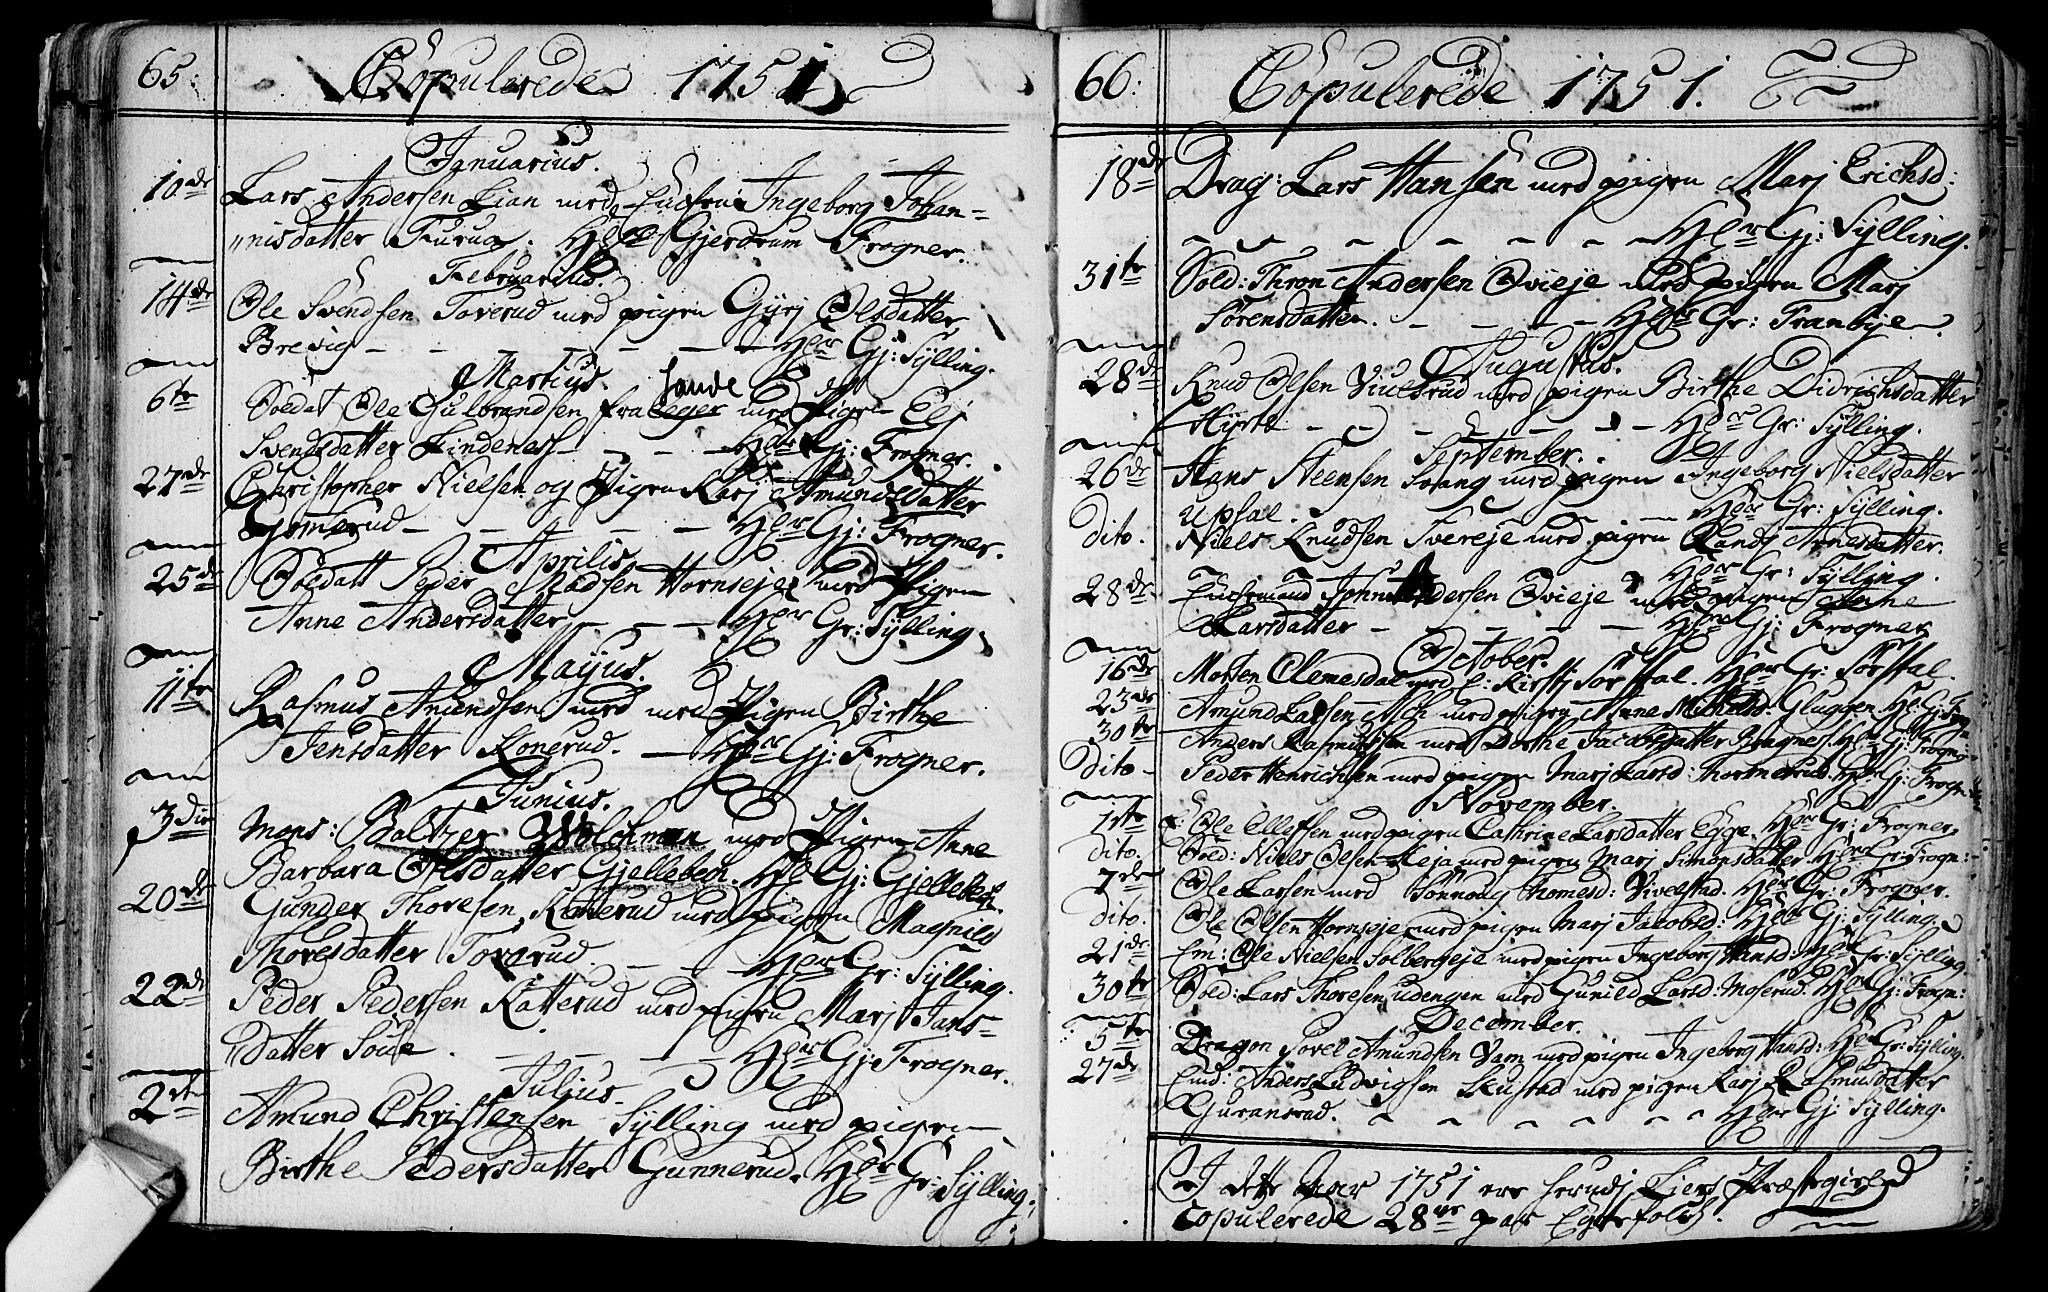 65:
Copulerede 1751
Januarius.
10de Lars Andersen Lian med Ingeborg Johan=
nisdatter Furug. Gjerdrum Frogner.
Februarius.
14de Ole Svendsen Toverud med pigen Gurj Olsdatter
Brevig Gj: Sylling.
Martius. Sande
6te Soldat Ole Gulbrandsen fra med Pigen Elj
Svendsdatter Lindenes Gj: Frogner.
27de Christopher Nielsen og Pigen Karj Amundsdatter
Gomerud Gj: Frogner.
Aprilis.
25de Soldatt Peder Madsen Hornseje med Pigen
Anne Andersdatter Gr: Sylling.
Majus.
11te Rasmus Amundsen med med Pigen Birthe
Jensdatter Konerud. Gj: Frogner.
Junius.
3die Mons: Baltzer Wolchman med Pigen Anne
Barbara Olsdatter Gjellebech. Gj: Gjellebech.
20de Gunder Thoresen Katterud med pigen Magnild
Thoresdatter Toverud. Gr: Sylling.
22de Peder Pedersen Katterud med pigen Marj Jans=
datter Gj: Frogner.
Julius.
2den Amund Christensen Sylling med pigen
Birthe Pedersdatter Gunnerud. Gr: Sylling.
66:
Copulerede 1751.
18de Drag: Lars Hansen med pigen Marj Erichsd:
Gj: Sylling.
31te Sold: Thron Andersen Qvieje med pigen Marj
Sörensdatter. Gr: Tranbye.
Augustus.
28de Knud Olsen Viulsrud med pigen Birthe Didrichsdatter
Hyrte Gr: Sylling.
September.
26de Hans Steensen Svang med pigen Ingeborg Nielsdatter
Upsal. Gr: Sylling.
Dito. Niels Knudsen Svereje med pigen Randj Arnesdatter.
Gr: Sylling.
28de Andersen Qvieje med pigen Anne
Larsdatter Gj: Frogner.
October.
16de Morten Clemesdal med E: Kirstj Sörsdal. Gr: Sörsdal.
23de Amund Larsen med pigen Anne Gluggen Gj: Frogn:
30te Anders Rasmussen med Dorthe Jacobsdatter Bragnes. Gj: Frogn:
Dito Peder Henrichsen med pigen Marj Larsd: Thormerud. Gj: Frogn:
November.
1te Ole Ellefsen med pigen Cathrine Larsdatter Egge. Gr: Frogner.
Dito. Sold: Niels Olsen med pigen Marj Simonsdatter. Gr: Frogn:
7de Ole Larsen med Sönnoug Thomesd: Vivelstad. Gr: Frogner.
Dito. Ole Olsen Hornseje med pigen Marj Jacobsd: Gj: Sylling.
21de Em: Ole Nielsen Solbergeje med pigen Ingeborg Hansd: Gr: Sylling.
30te Sold: Lars Thoresen udengen med Gunild Larsd: Moserud. Gj: Frogn:
December.
5te Dragon Povel Amundsen med pigen Ingeborg Hansd: Gr: Sylling.
27de Anders Ludvigsen med pigen Karj Rasmusdatter
Guransrud. Gj: Sylling.
I dette Aar 1751 ere Liers Præstegield
Copulerede 28 par